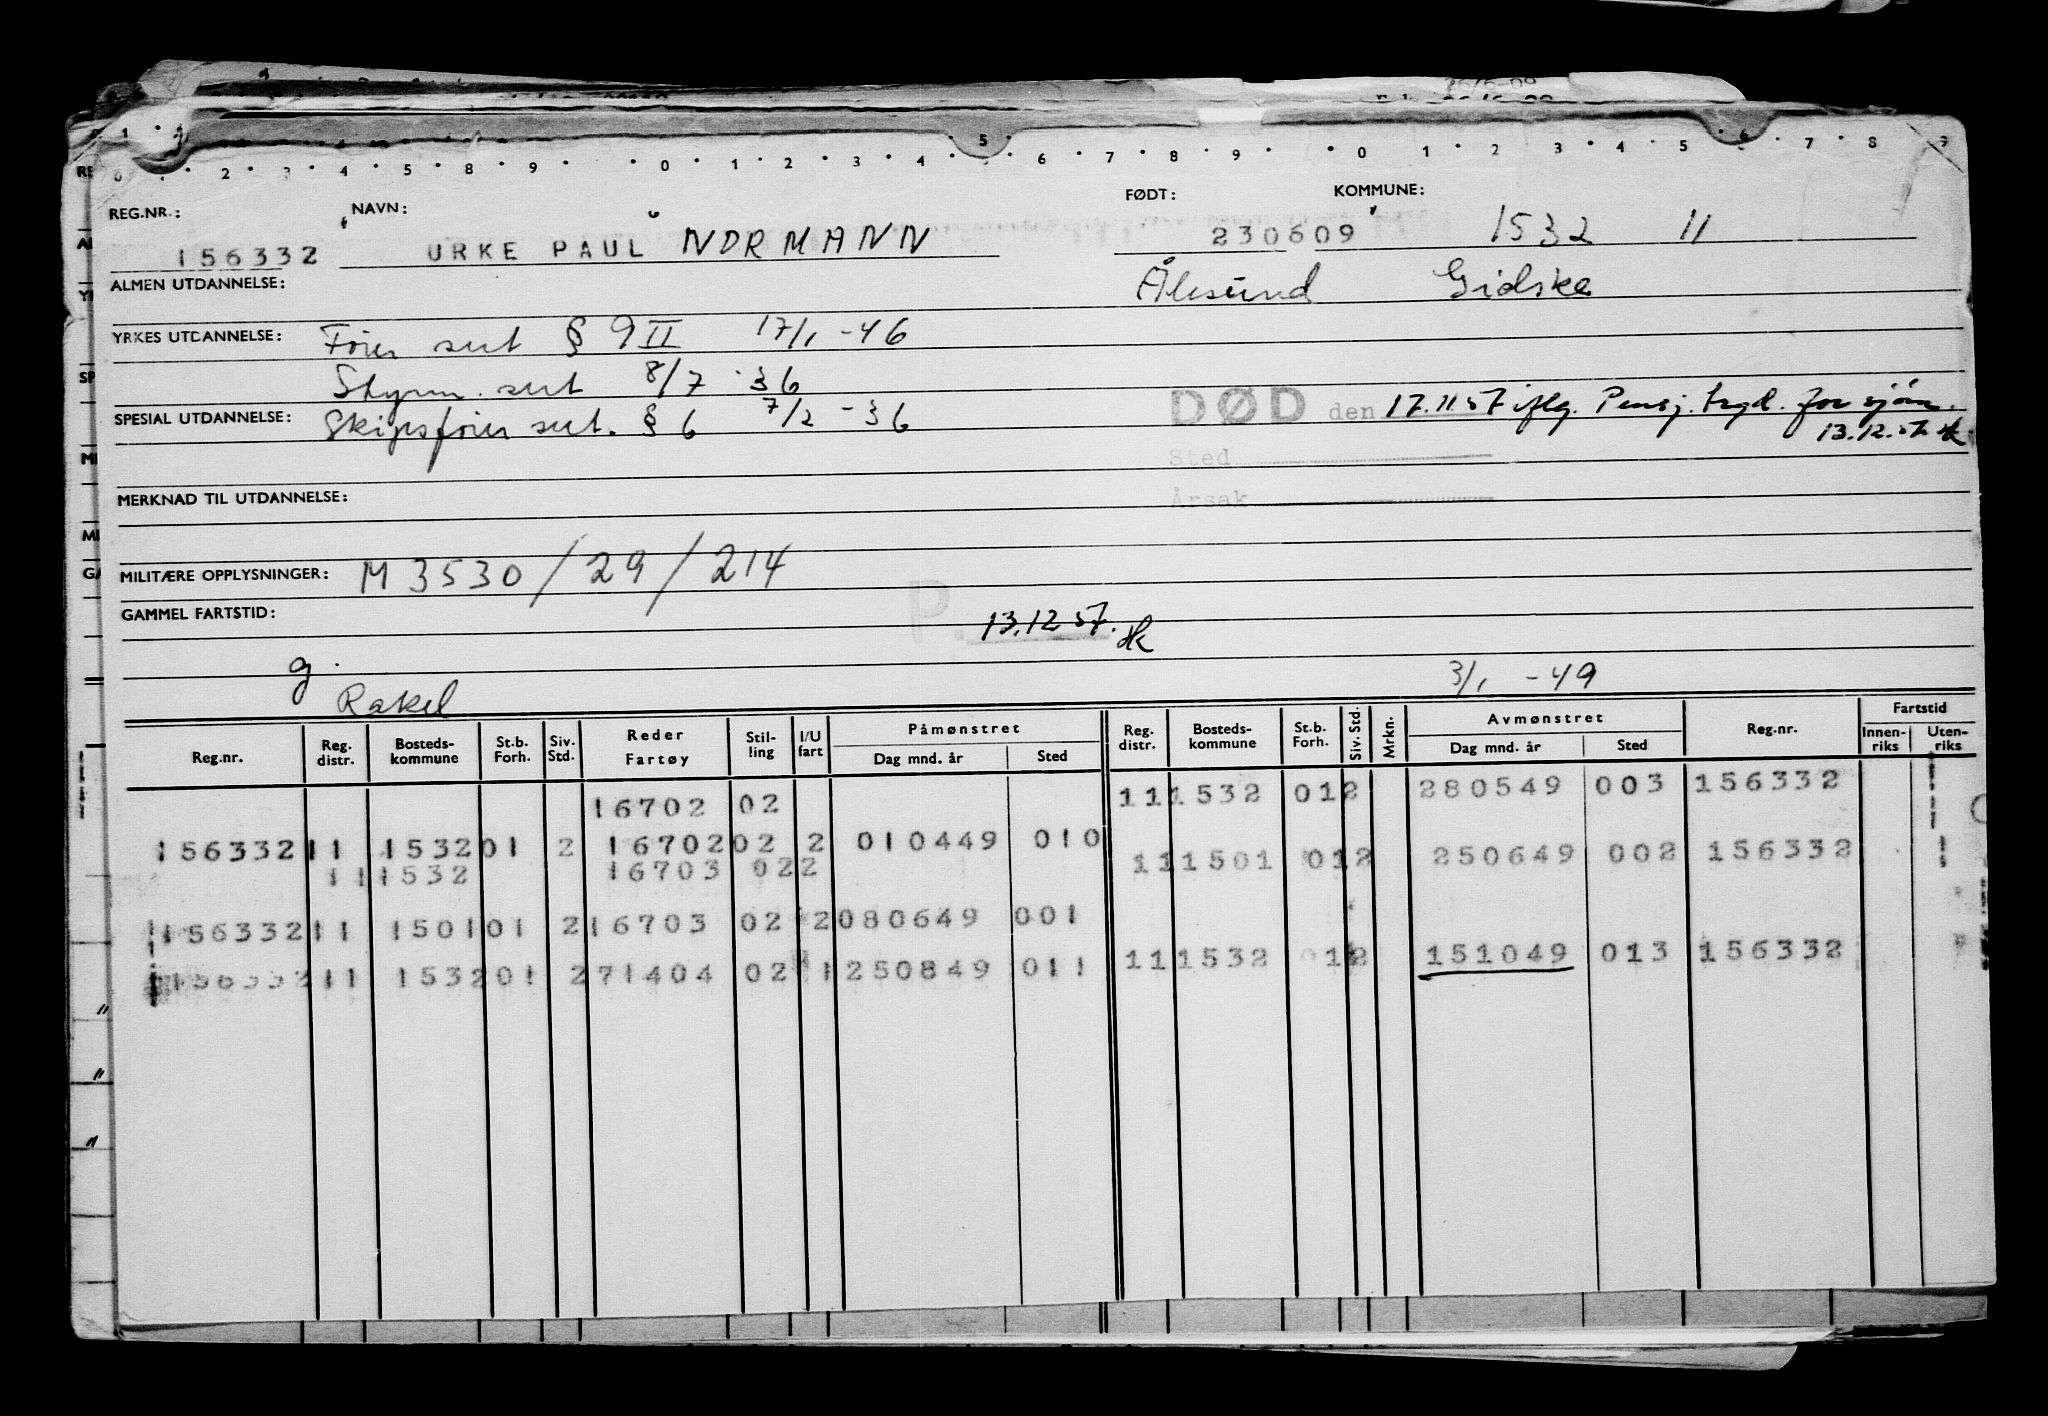 REG.NR.: NAVN: FØDT: KOMMUNE:
156332 URKE PAUL NORMANN 230609 1532 11
ALMEN UTDANNELSE: Ålesund Giske
YRKES UTDANNELSE: Fører sert § 9 II 17/1 -46
Styrm. sert 8/7 36
SPESIAL UTDANNELSE: Skipsfører sert. § 6 7/2 -36
DØD den 17.11.57 iflg. Pensj. trygd. for sjøm.
13.12.57
Sted
Årsak
MERKNAD TIL UTDANNELSE:
MILITÆRE OPPLYSNINGER: M 3530/29/214
GAMMEL FARTSTID:
P. 13.12 57.
g.
Rakel 3/1 -49
Reg.nr. Reg. distr. Bosteds-kommune St.b. Forh. Siv. Std. Reder Fartøy Stil-ling I/U fart Påmønstret Dag mnd. år Sted Reg. distr. Bosteds-kommune St.b. Forh. Siv. Std. Mrkn. Avmønstret Dag mnd. år Sted Reg.nr. Fartstid Innen-riks Uten-riks
16702 02 11 1532 01 2 280549 003 156332
156332 11 1532 01 2 16702 02 2 010449 010
11 1532 16703 02 2 11 1501 01 2 250649 002 156332
156332 11 1501 01 2 16703 02 2 080649 001
156332 11 1532 01 2 71404 02 1 250849 011 11 1532 01 2 151049 013 156332